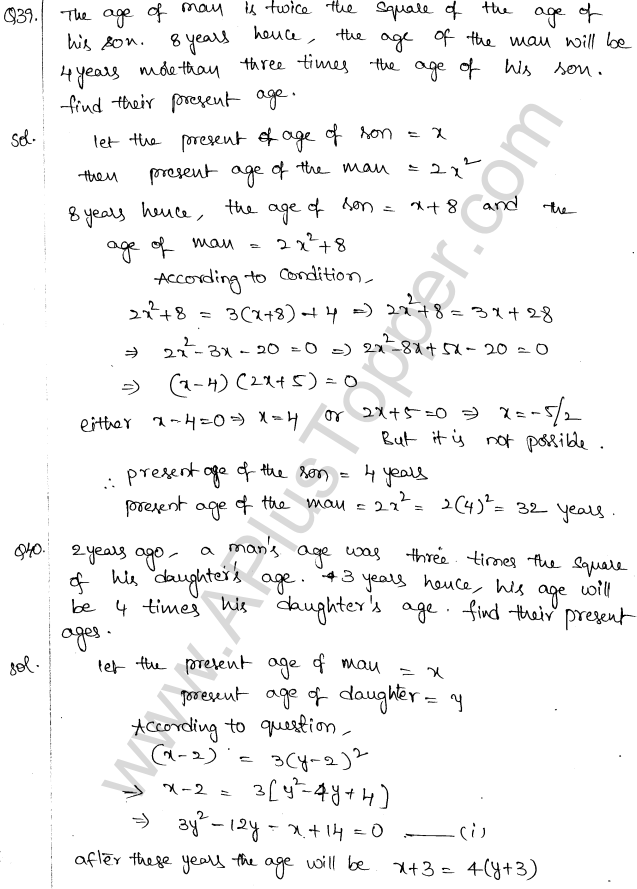 Q39. The age of man is twice the square of the age of
his son. 8 years hence, the age of the man will be
4 years more than three times the age of his son.
find their present age.
Sol. let the present of age of son = x
then present age of the man = 2x²
8 years hence, the age of son = x+8 and the
age of man = 2x²+8
According to Condition,
2x²+8 = 3(x+8)+4 ⇒ 2x²+8 = 3x+28
⇒ 2x²-3x-20=0 ⇒ 2x²-8x+5x-20=0
⇒ (x-4)(2x+5)=0
either x-4=0 ⇒ x=4 or 2x+5=0 ⇒ x=-5/2
But it is not possible.
∴ present age of the son = 4 years
present age of the man = 2x² = 2(4)² = 32 years.
Q40. 2 years ago, a man's age was three times the square
of his daughter's age. 3 years hence, his age will
be 4 times his daughter's age. find their present
ages.
Sol. let the present age of man = x
present age of daughter = y
According to question,
(x-2) = 3(y-2)²
⇒ x-2 = 3[y²-4y+4]
⇒ 3y²-12y-x+14=0 ——(i)
after these years the age will be x+3 = 4(y+3)
www.APlusTopper.com